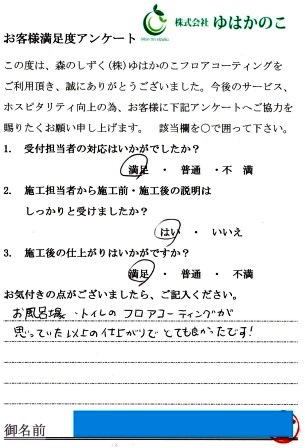 株式会社 ゆはかのこ
お客様満足度アンケート
この度は、森のしずく(株)ゆはかのこフロアコーティングを
ご利用頂き、誠にありがとうございました。今後のサービス、
ホスピタリティ向上の為、お客様に下記アンケートへご協力を
賜りたくお願い申し上げます。 該当欄を○で囲って下さい。
1. 受付担当者の対応はいかがでしたか？
満足 ・ 普通 ・不 満
2. 施工担当者から施工前・施工後の説明は
しっかりと受けましたか？
はい ・ いいえ
3. 施工後の仕上がりはいかがですか？
満足 ・ 普通 ・ 不満
お気付きの点がございましたら、ご記入ください。
お風呂場・トイレのフロアコーティングが
思っていた以上の仕上がりでとても良かったです！
御名前